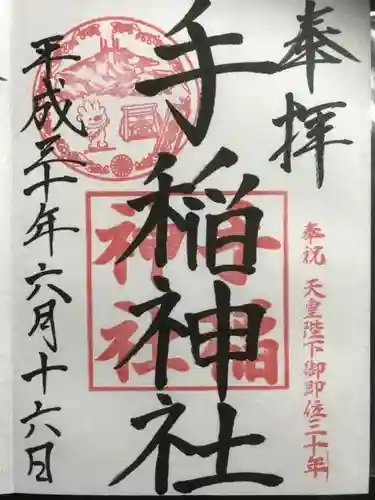 奉拝
奉祝 天皇陛下御即位三十年
手稲神社
手稲
神社
平成三十年六月十六日